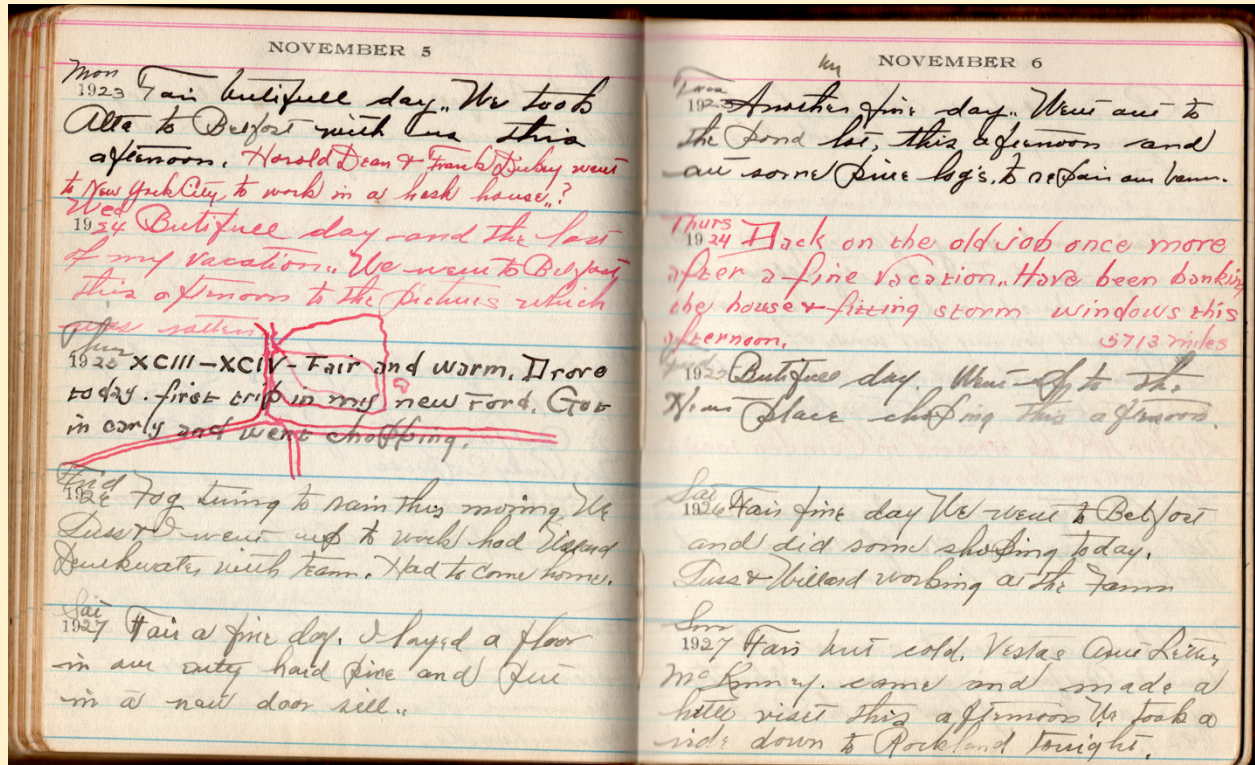 NOVEMBER 5
Mon
1923 Fair butifull day.. We took
Alta to Belfast with us this
afternoon. Harold Dean & Frank Dubey went
to New York City, to work in a hash house..?
Wed
1924 Butifull day and the last
of my vacation.. We went to Belfast
this afternoon to the picture which
was rotten
Thur
1925 XCIII-XCIV-Fair and warm. Drove
today. first trip in my new Ford. Got
in early and went chopping.
Frid
1926 Fog turing to rain this moring. We
Tuss & I went up to work had
Drinkwater with team. Had to come home.
Sat
1927 Fair a fine day. I layed a floor
in our entry hard pine and put
in a new door sill..
NOVEMBER 6
Tues
1923 Another fine day.. Went out to
the pond lot, this afternoon and
cut some pine log's. to repair our barn.
Thurs
1924 Back on the old job once more
after a fine vacation.. Have been banking
the house & fitting storm windows this
afternoon. 5713 miles
Frid
1925 Butifull day. Went up to the
place choping this afternoon.
Sat
1926 Fair fine day We went to Belfast
and did some shoping today.
Tuss & Willard working at the Farm
Sun
1927 Fair but cold. Vesta &
McKinney. came and made a
little visit this afternoon We took a
ride down to Rockland tonight.